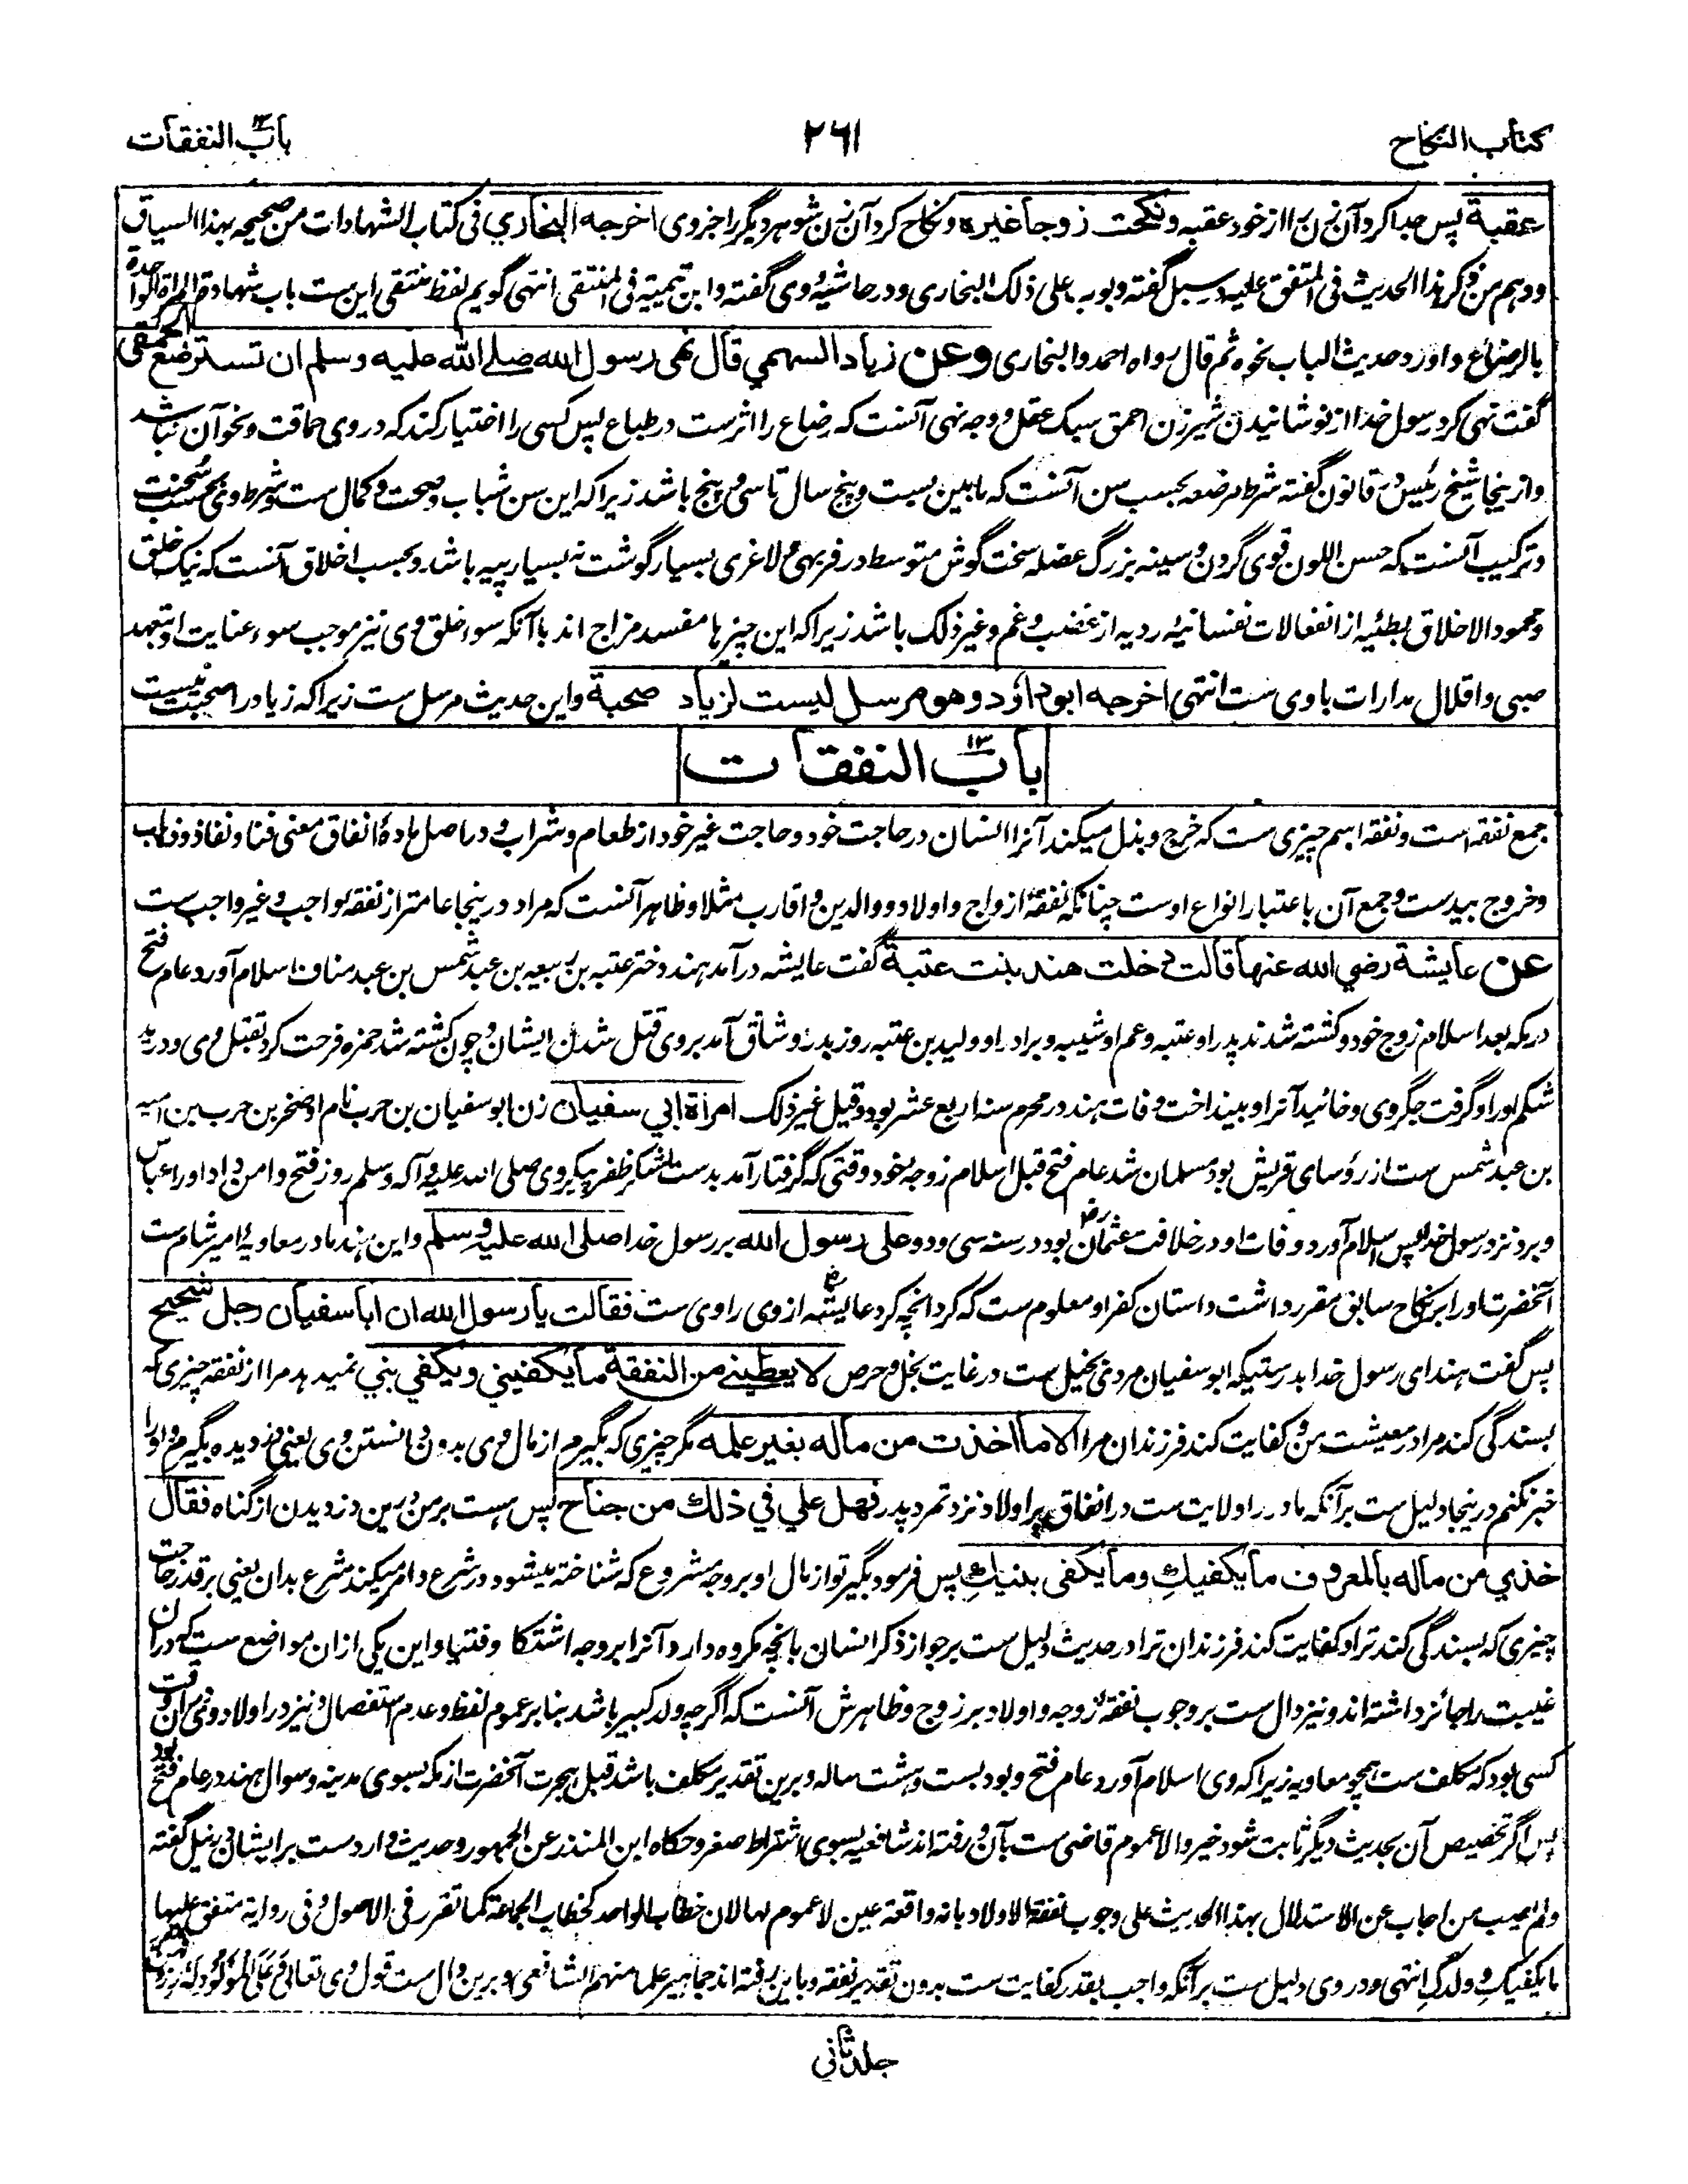 كتاب النكاح
٢٦١
باب النفقات
عقبة پس جدا کرد آن زن را از خود عقبه ونكحت زوجا غيره ونکاح کرد آن زن شوهر دیگر را جز وی اخرجه البخاري فی کتاب الشهادات من صحیحه بهذا السیاق
ووهم من ذکر هذا الحدیث فی المتفق علیه در سبل گفته وبوب علی ذلک البخاری ودر حاشیهٔ وی گفته وابن تیمیة فی المنتقی انتهی گویم لفظ منتقی این ست باب شهادة المراة الواحدة
بالرضاع واورد حدیث الباب نحوه ثم قال رواه احمد والبخاری وعن زياد السهمي قال نهى رسول الله صلے الله عليه وسلم ان تسترضع الحمقى
گفت نهی کرد رسول خدا از نوشانیدن شیر زن احمق سبک عقل ووجه نهی آنست که رضاع را اثرست در طباع پس کسی را اختیار کند که در وی حماقت ونحو آن نباشد
وازینجا شیخ رئیس در قانون گفته شرط مرضعه بحسب سن آنست که مابین بست وپنج سال تا سی وپنج باشد زیرا که این سن شباب وصحت وکمال ست وشرط وی بحسب سحنت
وترکیب آنست که حسن اللون قوی گردن وسینه بزرگ عضله سخت گوش متوسط در فربهی ولاغری بسیار گوشت نه بسیار پیه باشد وبحسب اخلاق آنست که نیک خلق
ومحمود الاخلاق بطئیه از انفعالات نفسانیهٔ ردیه از غضب وغم وغیر ذلک باشد زیرا که این چیزها مفسد مزاج اند با آنکه سوء خلق وی نیز موجب سوء عنایت او بتعهد
صبی واقلال مدارات باوی ست انتهی اخرجه ابو داؤد وهو مرسل ليست لزياد صحبة واین حدیث مرسل ست زیرا که زیاد را صحبت نیست
باب النفقات ١٣
جمع نفقه است ونفقه اسم چیزی ست که خرج وبذل میکند آنرا انسان در حاجت خود وحاجت غیر خود از طعام وشراب ودر اصل مادهٔ انفاق معنی فنا ونفاذ وذهاب
وخروج بیدست وجمع آن باعتبار انواع اوست چنانکه نفقهٔ ازواج واولاد ووالدین واقارب مثلا وظاهر آنست که مراد درینجا عامتر از نفقهٔ واجب وغیر واجب ست
عن عايشة رضي الله عنها قالت دخلت هند بنت عتبة گفت عایشه درآمد هند دختر عتبه بن ربیعه بن عبد شمس بن عبد مناف اسلام آورد عام فتح
در مکه بعد اسلام زوج خود وکشته شدند پدر او عتبه وعم او شیبه وبرادر او ولید بن عتبه روز بدر وشاق آمد بروی قتل شدن ایشان وچون کشته شد حمزه فرحت کرد بقتل وی ودرید
شکم او را وگرفت جگر وی وخائید آنرا وبینداخت وفات هند در محرم سنه اربع عشر بود وقیل غیر ذلک امرأة ابي سفيان زن ابو سفیان بن حرب نام او صخر بن حرب بن امیه
بن عبد شمس ست از رؤسای قریش بود مسلمان شد عام فتح قبل اسلام زوجه خود وقتی که گرفتار آمد بدست لشکر ظفر پیکر وی صلی الله علیه وآله وسلم روز فتح وامن داد او را عباس
وبرد نزد رسول خدا پس اسلام آورد وفات او در خلافت عثمان رض بود در سنه سی ودو على رسول الله بر رسول خدا صلى الله عليه وسلم واین هند مادر معاویهٔ امیر شام ست
آنحضرت او را بر نکاح سابق مقرر داشت داستان کفر او معلوم ست که کرد انچه کرد عایشه رض از وی راوی ست فقالت يا رسول الله ان ابا سفيان رجل شحيح
پس گفت هند ای رسول خدا بدرستیکه ابو سفیان مردی بخیل ست در غایت بخل وحرص لا يعطيني من النفقة ما يكفيني ويكفي بني نمیدهد مرا از نفقه چیزی که
بسندگی کند مرا در معیشت من وکفایت کند فرزندان مرا الا ما اخذت من ماله بغير علمه مگر چیزی که بگیرم از مال وی بدون دانستن وی یعنی دزدیده بگیرم واو را
خبر نکنم درینجا دلیل ست بر آنکه مادر را ولایت ست در انفاق بر اولاد نزد تمرد پدر فهل علي في ذلك من جناح پس هست بر من درین دزدیدن از گناه فقال
خذي من ماله بالمعروف ما يكفيكِ وما يكفى بنيكِ پس فرمود بگیر تو از مال او بر وجه مشروع که شناخته میشود در شرع وامر میکند شرع بدان یعنی بر قدر حاجت
چیزی که بسندگی کند ترا وکفایت کند فرزندان ترا در حدیث دلیل ست بر جواز ذکر انسان بانچه مکروه دارد آنرا بر وجه اشتکا وفتیا واین یکی ازان مواضع ست که دران
غیبت را جائز داشته اند ونیز دال ست بر وجوب نفقهٔ زوجه واولاد بر زوج وظاهرش آنست که اگرچه ولد کبیر باشد بنابر عموم لفظ وعدم استفصال ونیز در اولاد وی دران وقت
کسی بود که مکلف ست همچو معاویه زیرا که وی اسلام آورد عام فتح وبود بست وهشت ساله وبرین تقدیر مکلف باشد قبل هجرت آنحضرت از مکه بسوی مدینه وسوال هند در عام فتح بود
پس اگر تخصیص آن بحدیث دیگر ثابت شود خیر والا عموم قاضی ست بآن ورفته اند شافعیه بسوی اشتراط صغر وحکاه ابن المنذر عن الجمهور وحدیث وارد ست بر ایشان در نیل گفته
ولم یصب من اجاب عن الاستدلال بهذا الحدیث علی وجوب نفقة الاولاد بانه واقعة عین لا عموم لها لان خطاب الواحد کخطاب الجماعة کما تقرر فی الاصول وفی روایة متفق علیها
ما یکفیکِ وولدکِ انتهی ودر وی دلیل ست بر آنکه واجب بقدر کفایت ست بدون تقدیر نفقه وباین رفته اند جماهیر علما منهم الشافعی وبرین دال ست قول وی تعالی وَعَلَى الْمَوْلُودِ لَهُ رِزْقُهُنَّ
جلد ثانی